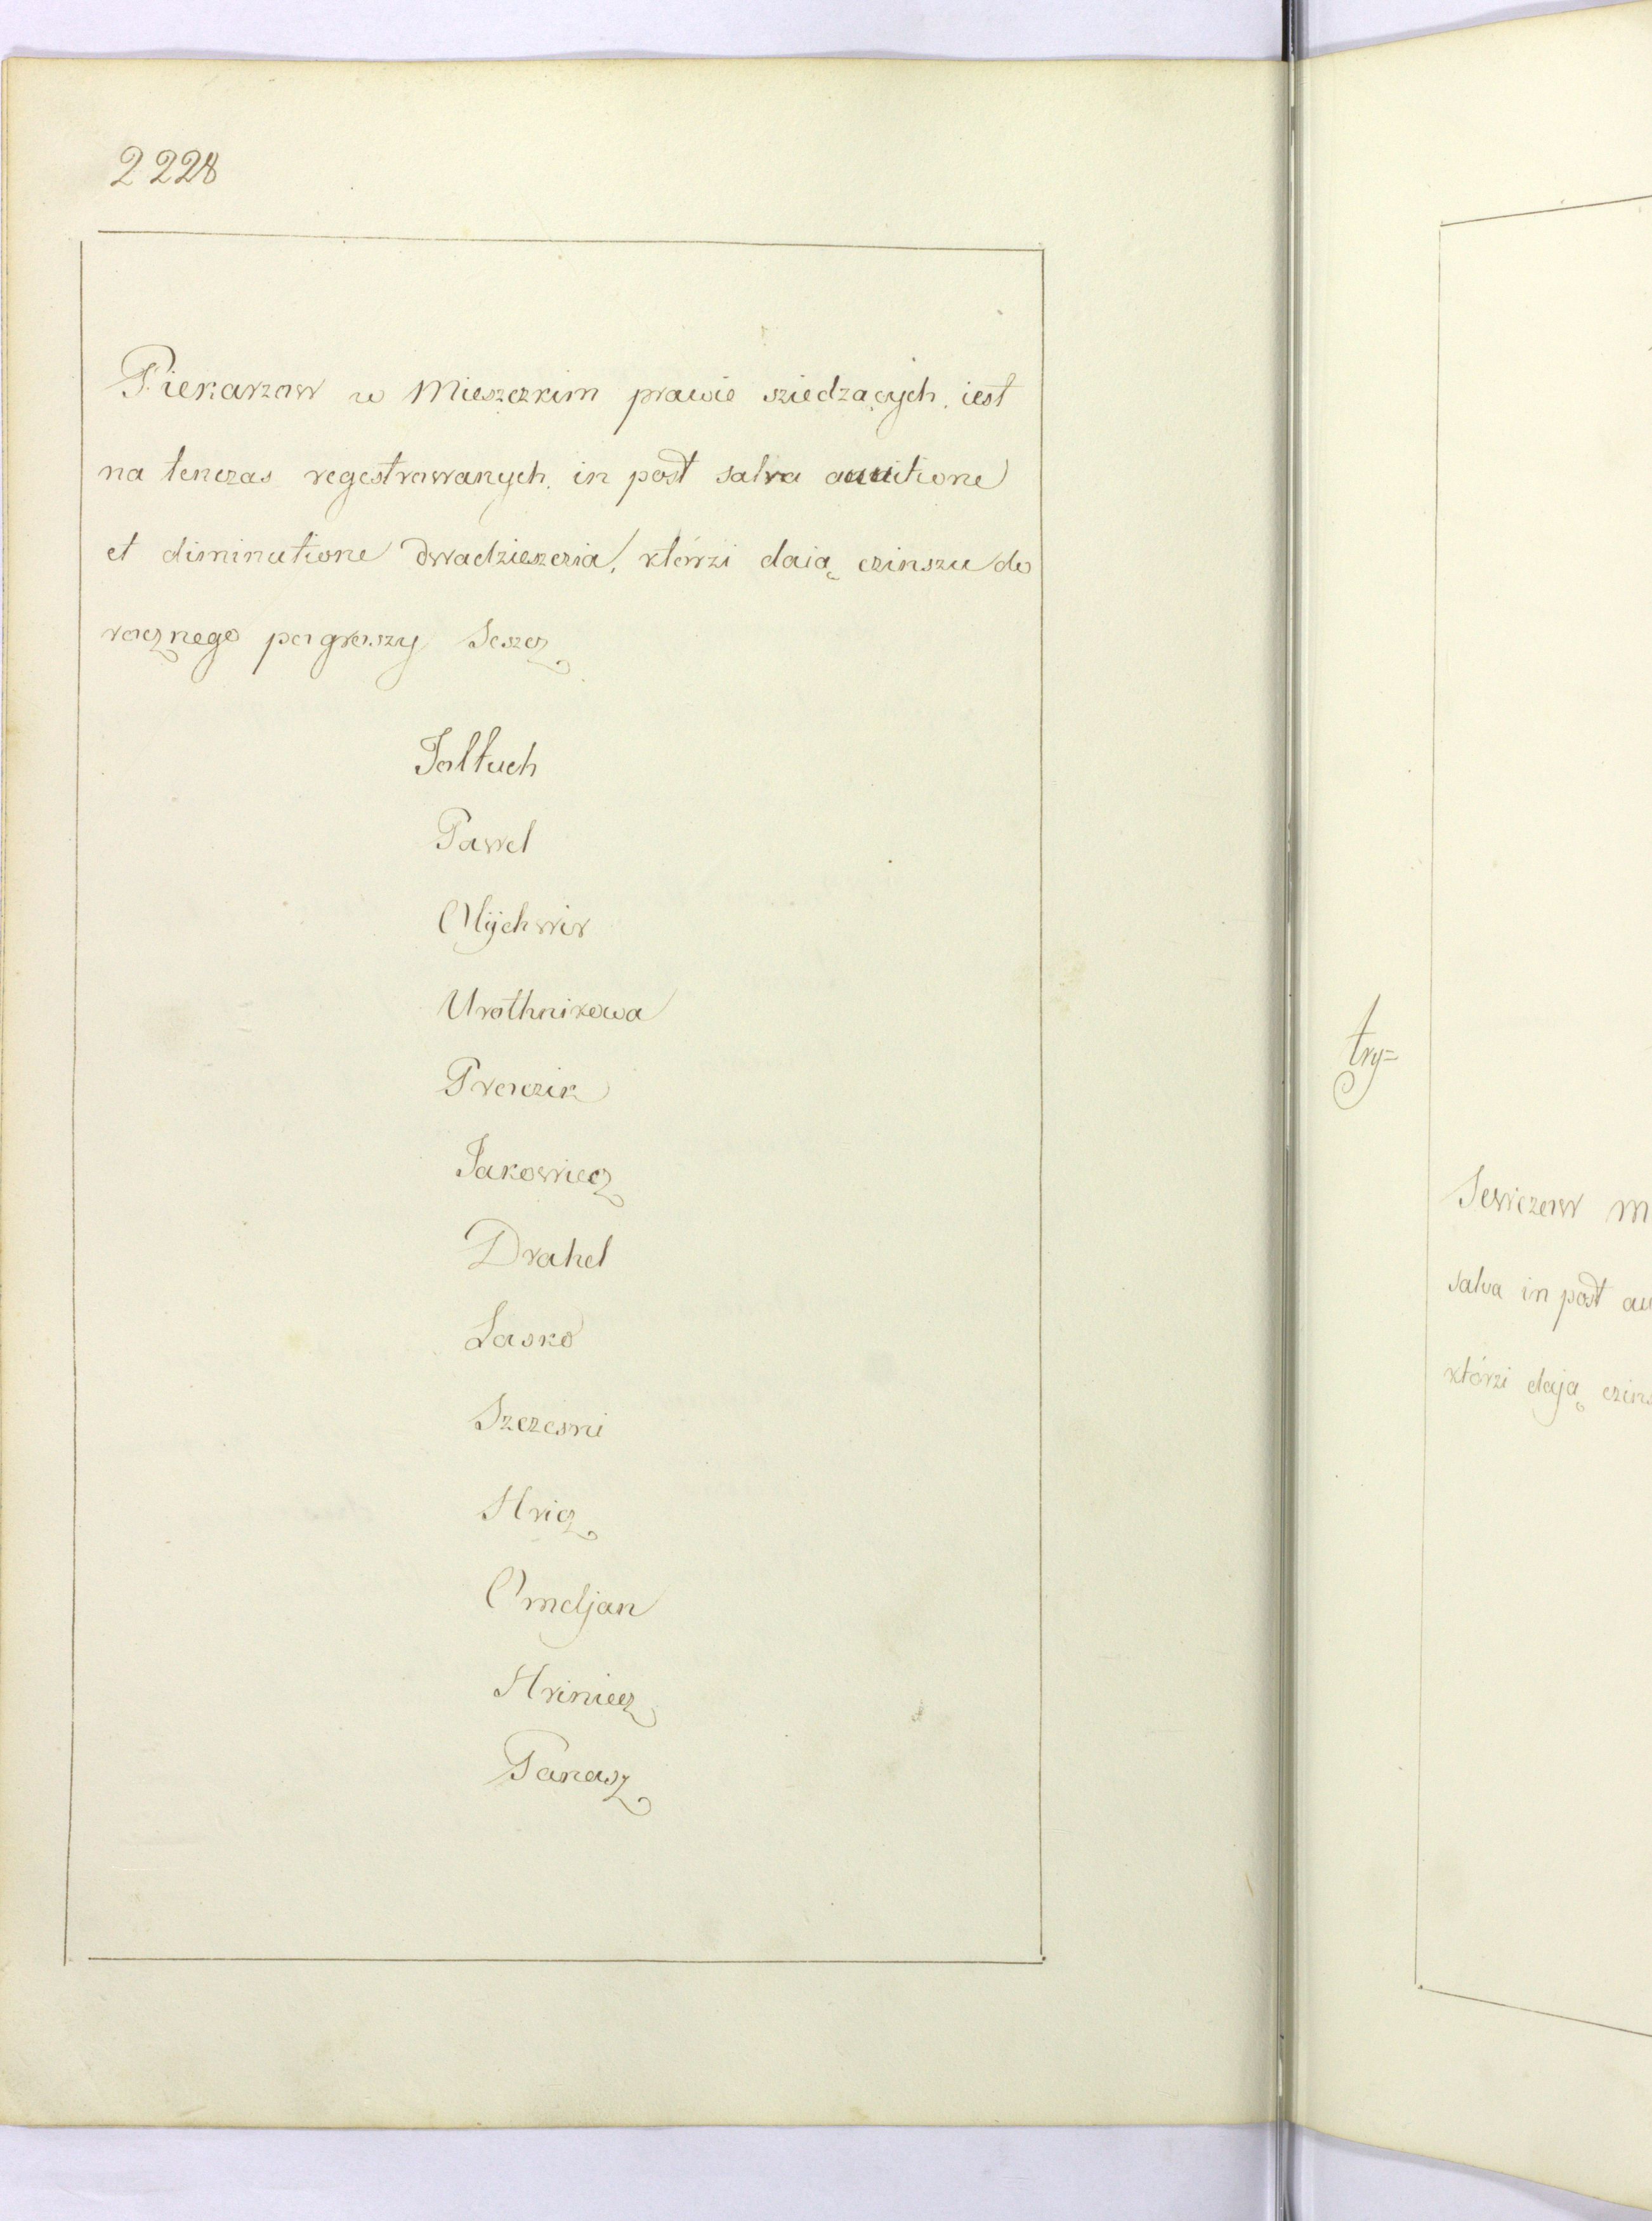 2228
Piekarzow w Mieszczkim prawie sziedzących, iest
na tenczas regestrowanych, in post salva auctione
et diminutione dwadzieszczia, którzi daią czinszu do
rocznego po groszy Szescz
Paweł
Olychwir
Urothnikowa
Prenczik
Jakowiecz
Drahel
Lasko
Szczesni
Hricz
Omeljan
Hriniecz
Panasz
try=
Sewczow m
salva in post au
którzi dają czins